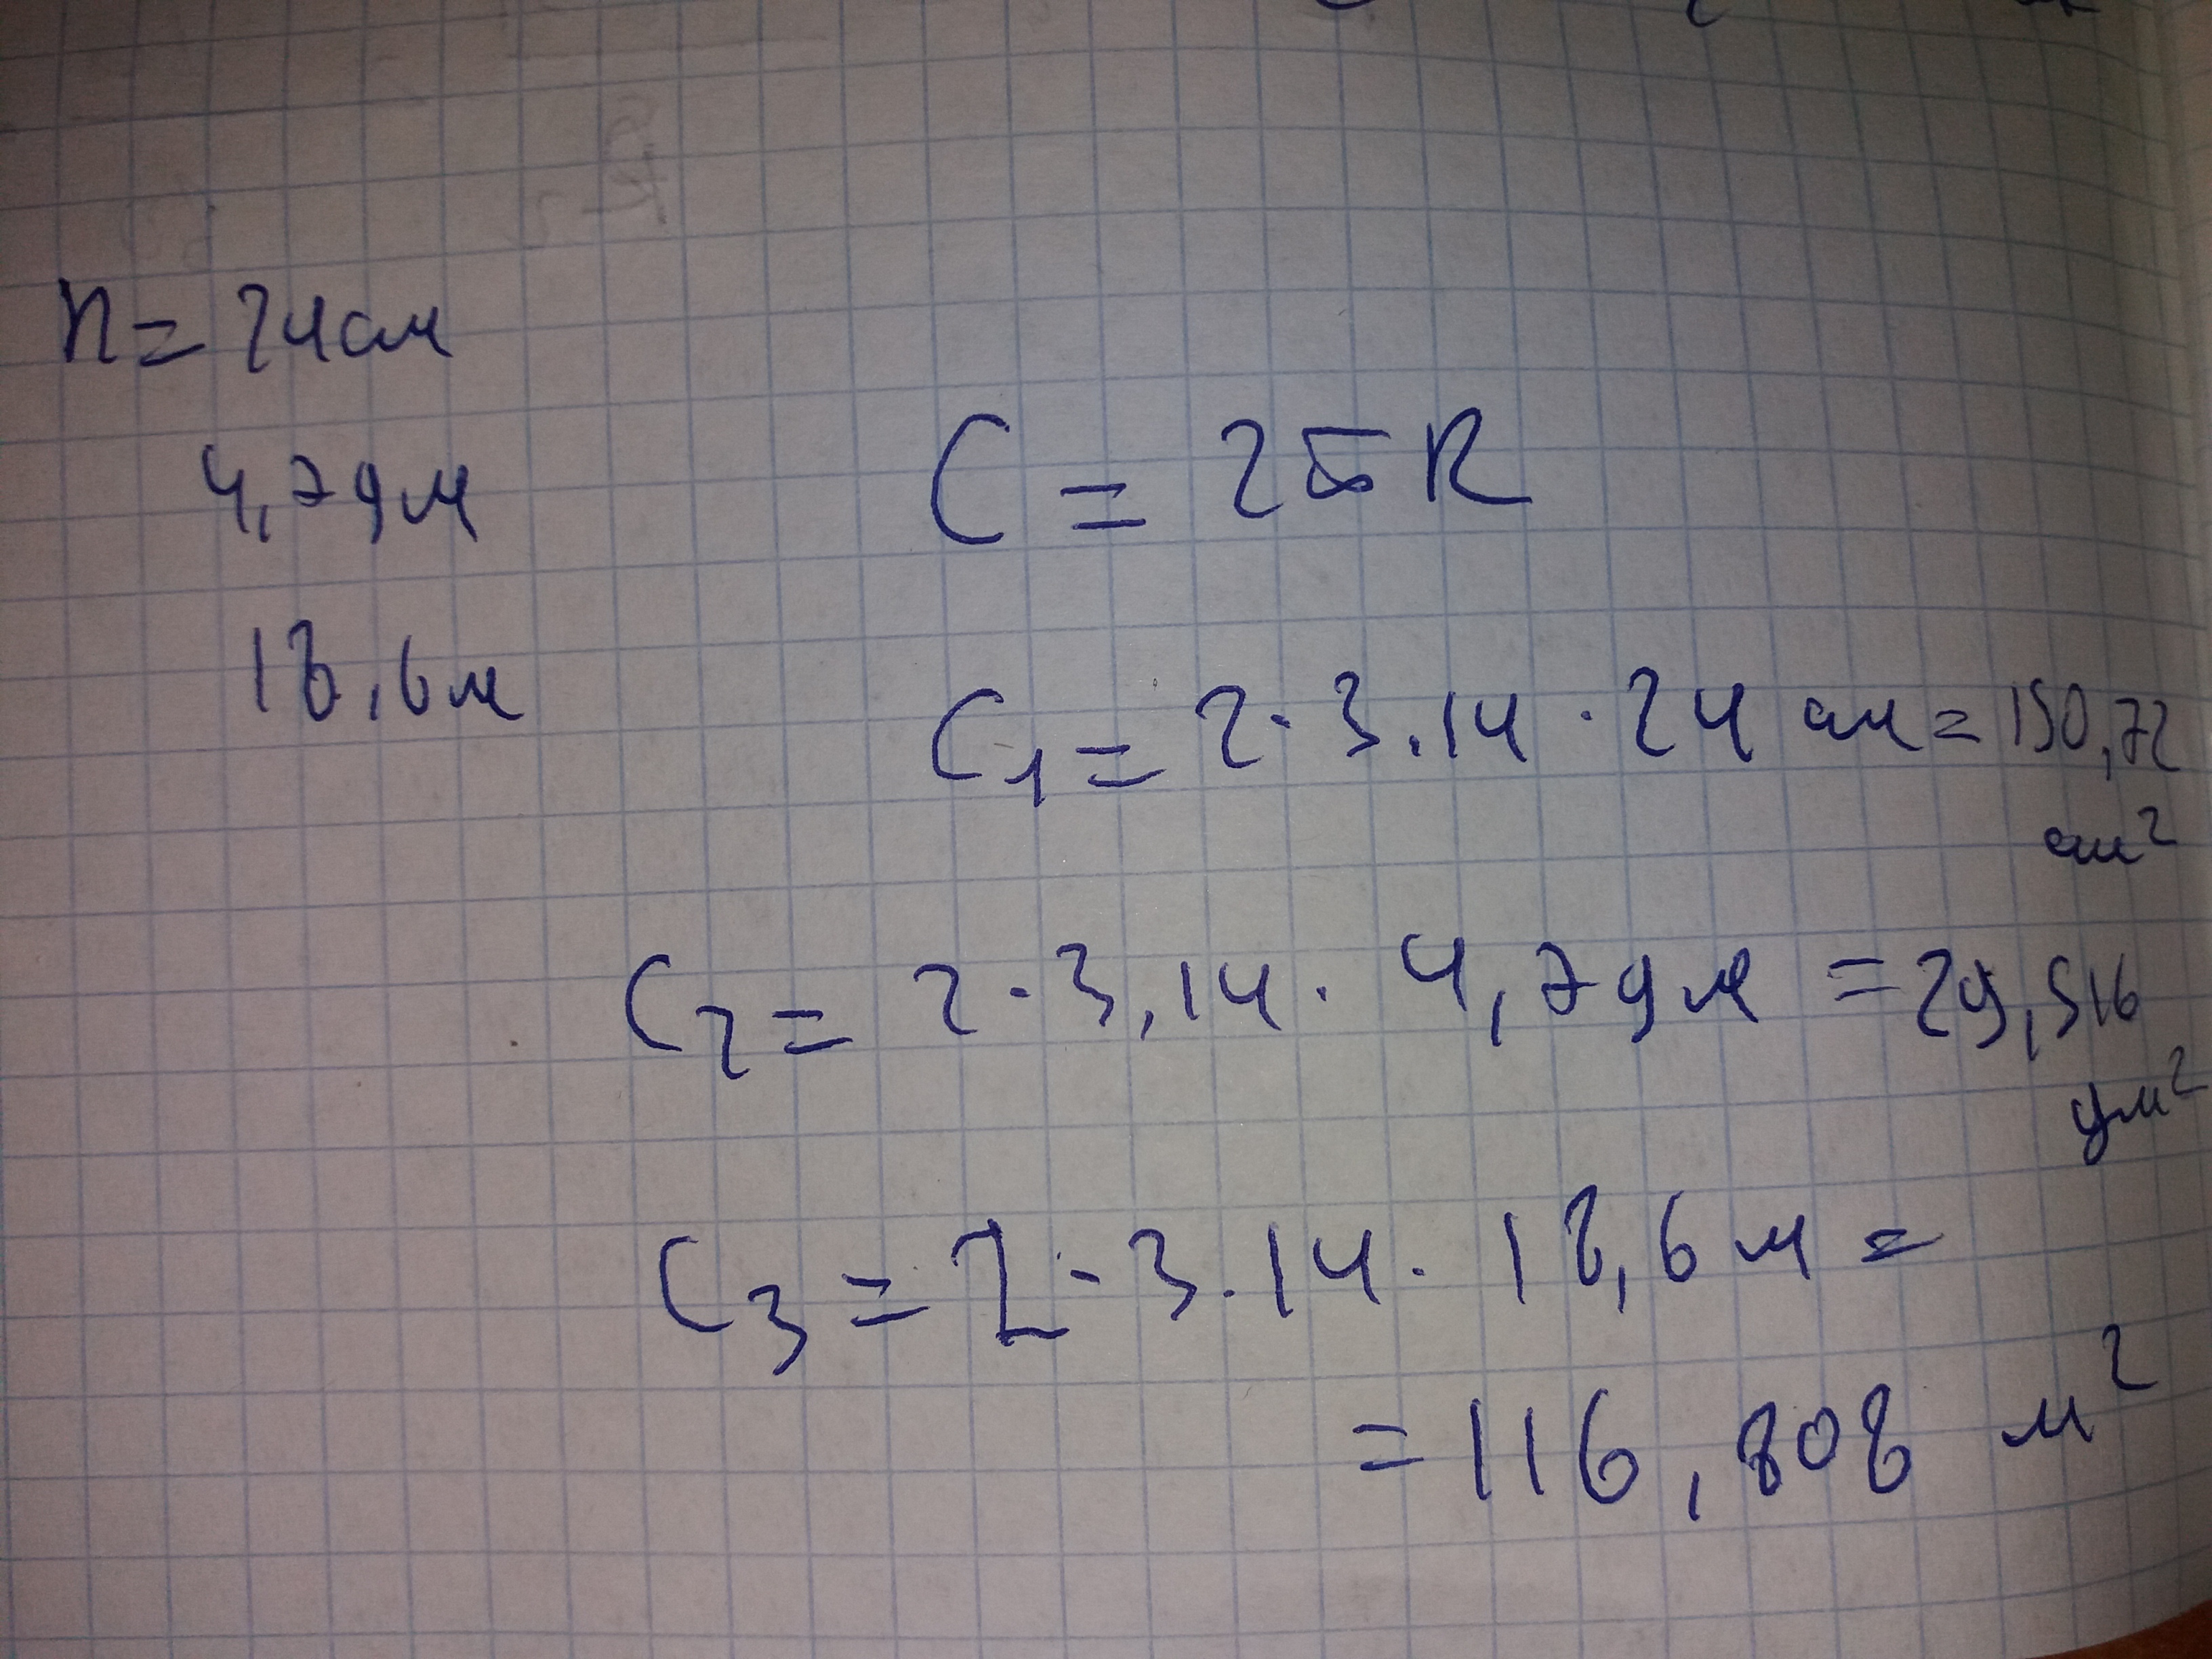 R = 24 см
4,7 дм
18,6 м
C = 2πR
C₁ = 2 · 3.14 · 24 см = 150,72
см²
C₂ = 2 · 3,14 · 4,7 дм = 29,516
дм²
C₃ = 2 · 3.14 · 18,6 м =
= 116,808 м²